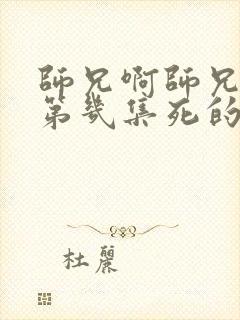 師兄啊師兄
第幾集死的
杜麗